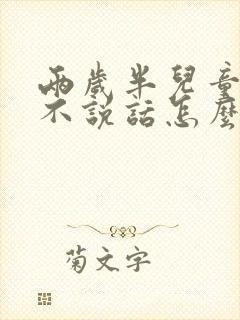 兩歲半兒童
不說話怎麼
菊文字